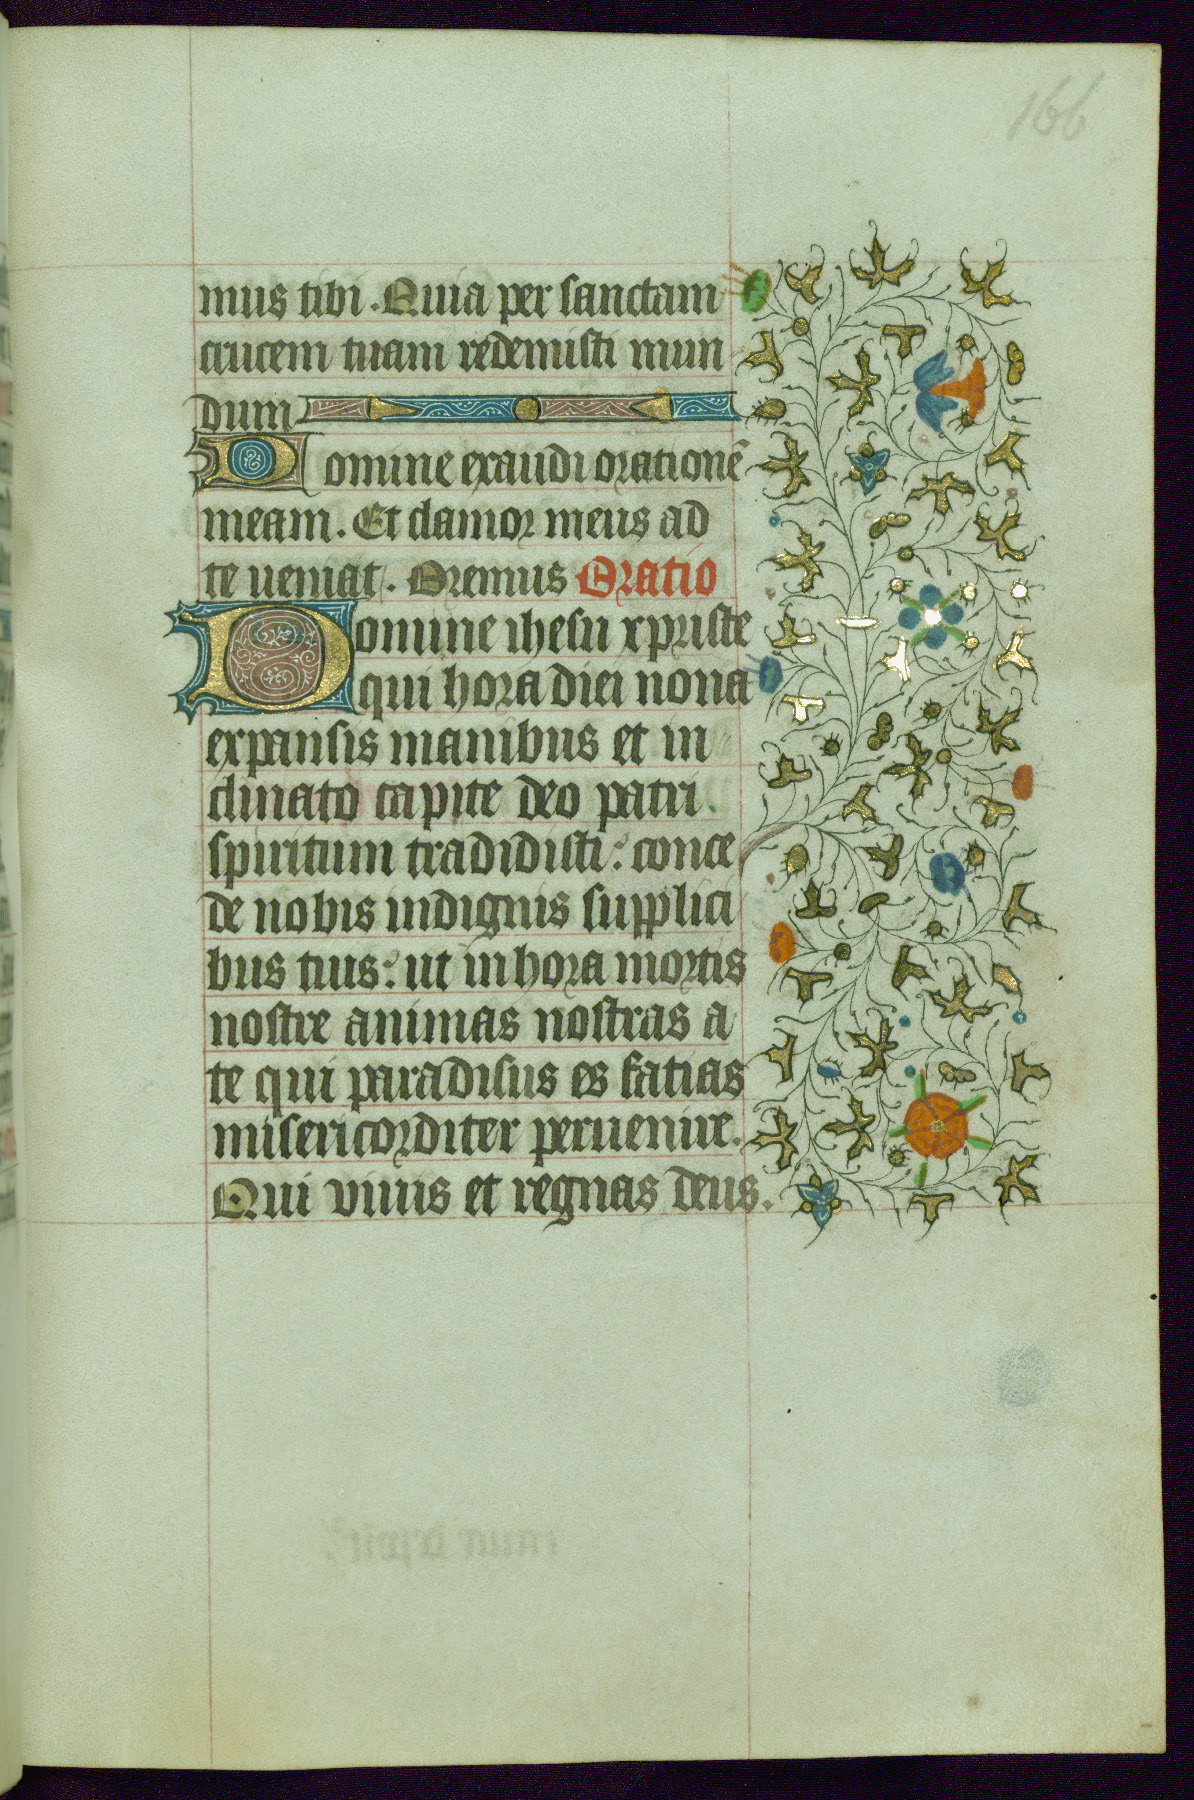 166
mus tibi. Quia per sanctam
crucem tuam redemisti mun
dum
Domine exaudi orationē
meam. Et clamor meus ad
te ueniat. Oremus Oratio
Domine ihesu xpriste
qui hora diei nona
expansis manibus et in
clinato capite deo patri
spiritum tradidisti: conce
de nobis indignis supplici
bus tuis: ut in hora mortis
nostre animas nostras a
te qui paradisus es fatias
misericorditer peruenire.
Qui viuis et regnas deus.